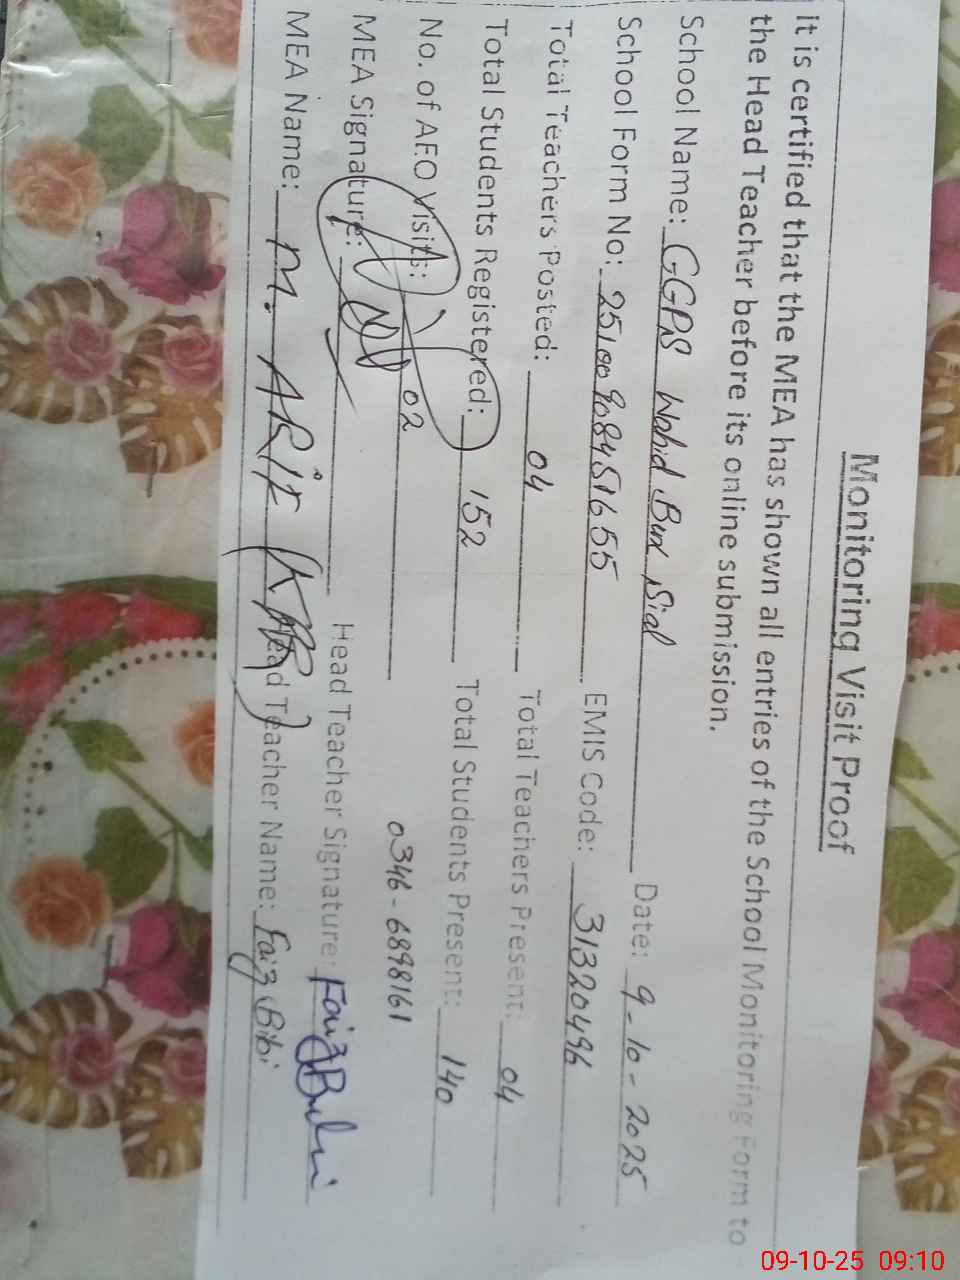 Monitoring Visit Proof
it is certified that the MEA has shown all entries of the School Monitoring Form to
the Head Teacher before its online submission.
School Name: GGPS Wahid Bux Sial Date: 9-10-2025
School Form No: 25100908451655 EMIS Code: 31320496
Total Teachers Posted: 04 Total Teachers Present: 04
Total Students Registered: 152 Total Students Present: 140
No. of AEO Visits: 02 0346-6898161
MEA Signature: Head Teacher Signature: Faiz Bibi
MEA Name: M. ARIF Head Teacher Name: Faiz Bibi
09-10-25 09:10